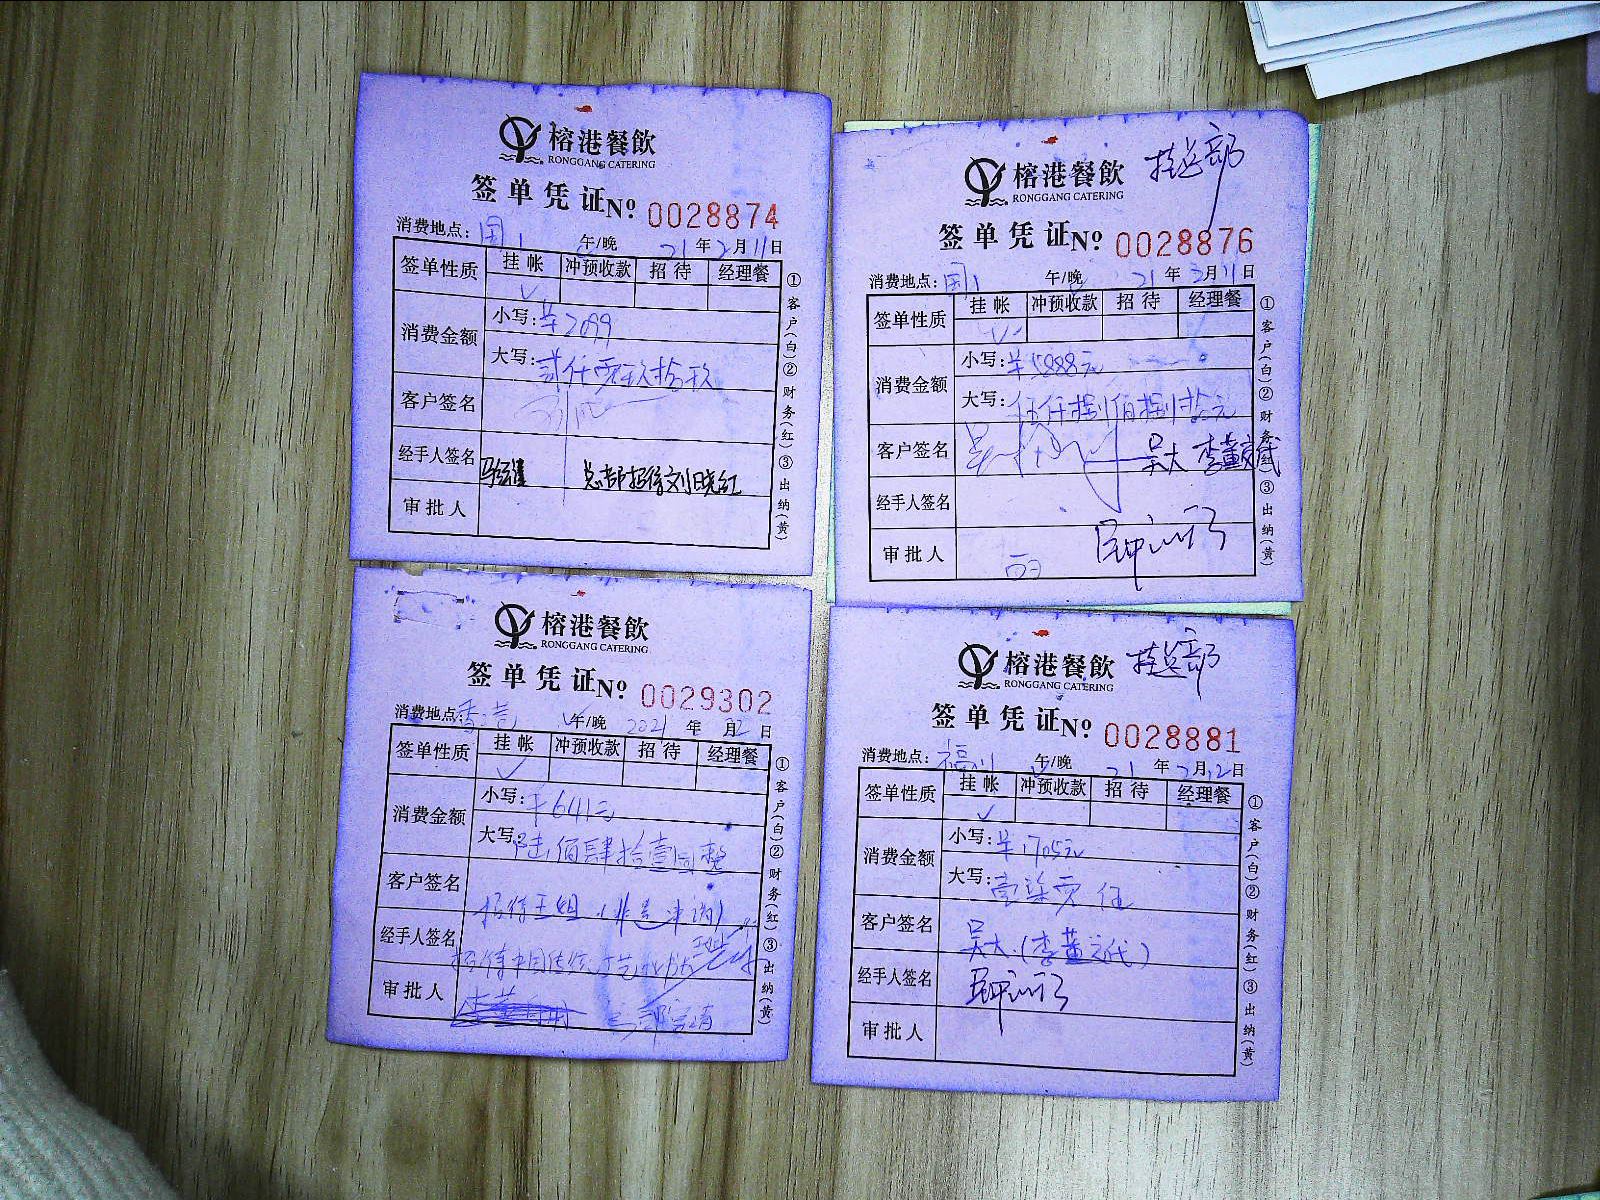 榕港餐飲
RONGGANG CATERING
签单凭证 Nº 0028874
消费地点: 国1 午/晚 21年2月11日
签单性质 挂帐 冲预收款 招待 经理餐
消费金额 小写: ¥2099
大写: 贰仟零玖拾玖
客户签名
经手人签名 总部招待刘晓红
审批人
①客户(白)②财务(红)③出纳(黄)
榕港餐飲 挂总部
RONGGANG CATERING
签单凭证 Nº 0028876
消费地点: 国1 午/晚 21年2月11日
签单性质 挂帐 冲预收款 招待 经理餐
消费金额 小写: ¥5888元
大写: 伍仟捌佰捌拾元
客户签名 吴大 李董交代
经手人签名
审批人
①客户(白)②财务红③出纳(黄)
榕港餐飲
RONGGANG CATERING
签单凭证 Nº 0029302
消费地点: 午/晚 2021年月12日
签单性质 挂帐 冲预收款 招待 经理餐
消费金额 小写: 641元
大写: 陆佰肆拾壹圆整
客户签名 招待王组
经手人签名 招待中国传统
审批人
①客户(白)②财务(红)③出纳(黄)
榕港餐飲 挂总部
RONGGANG CATERING
签单凭证 Nº 0028881
消费地点: 福州 午/晚 21年2月12日
签单性质 挂帐 冲预收款 招待 经理餐
消费金额 小写: ¥1705元
大写: 壹柒零伍
客户签名 吴大(李董交代)
经手人签名
审批人
①客户(白)②财务(红)③出纳(黄)